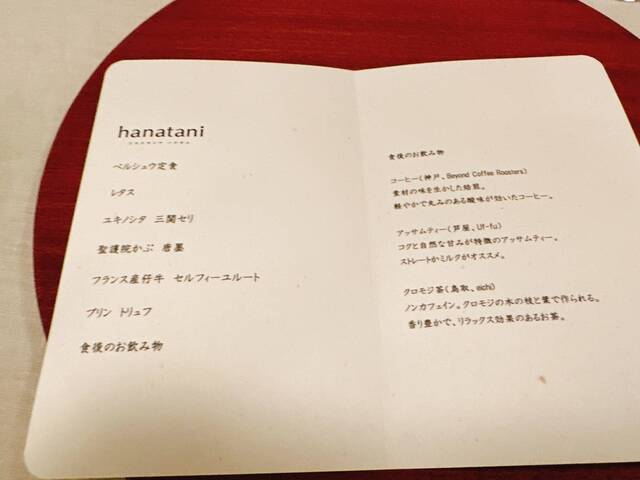 hanatani
ペルシュウ定食
レタス
ユキノシタ 三関セリ
聖護院かぶ 唐墨
フランス産仔牛 セルフィーユルート
プリン トリュフ
食後のお飲み物
食後のお飲み物
コーヒー(神戸、Beyond Coffee Roasters)
素材の味を生かした焙煎。
軽やかで丸みのある酸味が効いたコーヒー。
アッサムティー(芦屋、Uf-fu)
コクと自然な甘みが特徴のアッサムティー。
ストレートかミルクがオススメ。
クロモジ茶(鳥取、eichi)
ノンカフェイン。クロモジの木の枝と葉で作られる。
香り豊かで、リラックス効果のあるお茶。